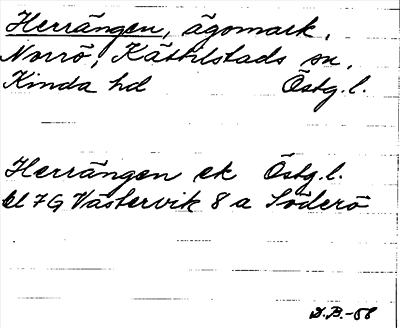 Herrängen, ägomark,
Norrö, Kättilstads sn,
Kinda hd Östg.l.
Herrängen ek Östg.l.
bl 7G Västervik 8 a Söderö
D.B.-58